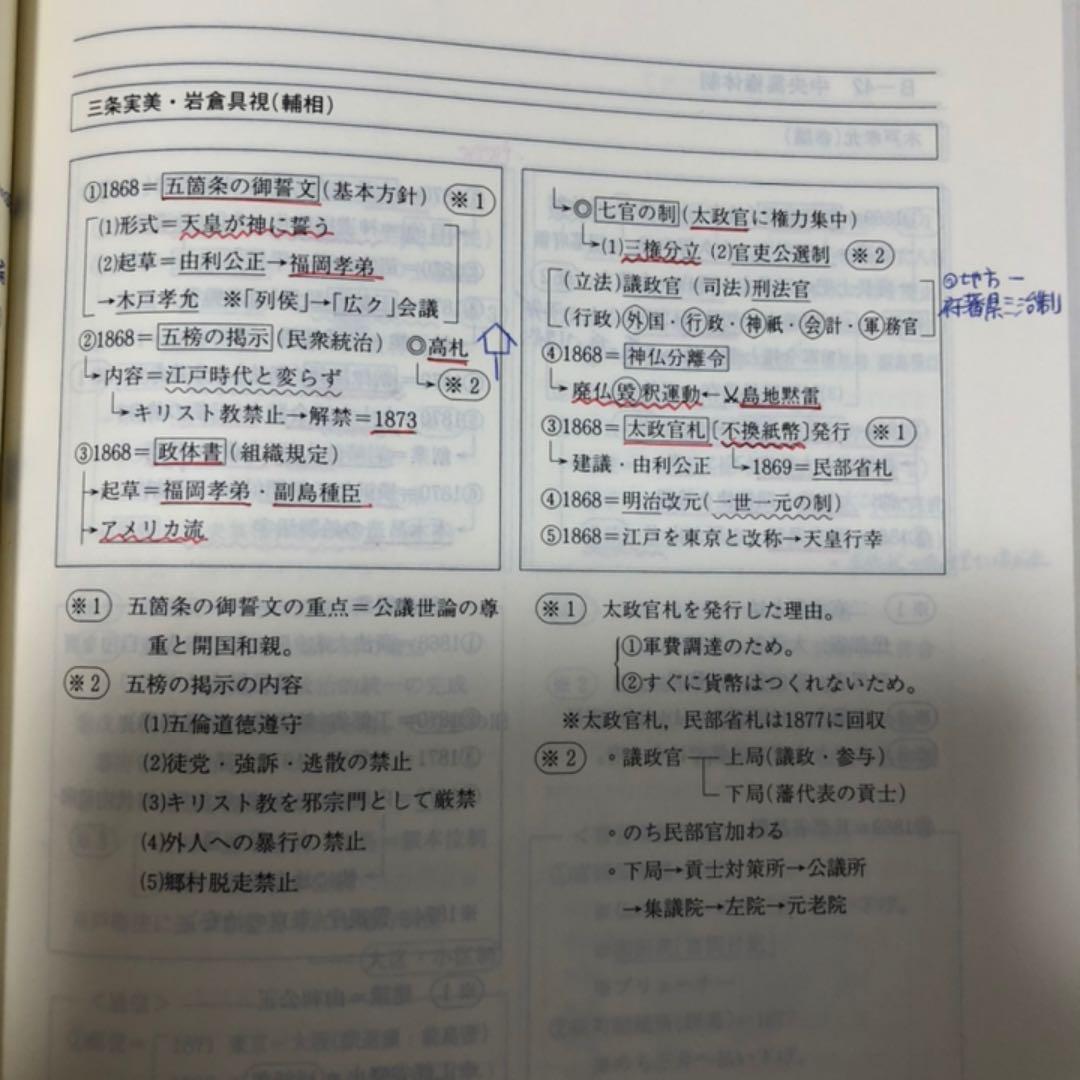 三条実美・岩倉具視(輔相)
①1868=五箇条の御誓文(基本方針) ※1
(1)形式=天皇が神に誓う
(2)起草=由利公正→福岡孝弟
→木戸孝允 ※「列侯」→「広ク」会議
②1868=五榜の掲示(民衆統治) ◎高札
→内容=江戸時代と変らず →※2
→キリスト教禁止→解禁=1873
③1868=政体書(組織規定)
→起草=福岡孝弟・副島種臣
→アメリカ流
→◎七官の制(太政官に権力集中)
→(1)三権分立 (2)官吏公選制 ※2
(立法)議政官 (司法)刑法官
(行政)外国・行政・神祇・会計・軍務官
◎地方一
府藩県三治制
④1868=神仏分離令
→廃仏毀釈運動←×島地黙雷
③1868=太政官札[不換紙幣]発行 ※1
→建議・由利公正 →1869=民部省札
④1868=明治改元(一世一元の制)
⑤1868=江戸を東京と改称→天皇行幸
※1 五箇条の御誓文の重点=公議世論の尊
重と開国和親。
※2 五榜の掲示の内容
(1)五倫道徳遵守
(2)徒党・強訴・逃散の禁止
(3)キリスト教を邪宗門として厳禁
(4)外人への暴行の禁止
(5)郷村脱走禁止
※1 太政官札を発行した理由。
①軍費調達のため。
②すぐに貨幣はつくれないため。
※太政官札，民部省札は1877に回収
※2 ◦議政官 上局(議政・参与)
下局(藩代表の貢士)
◦のち民部官加わる
◦下局→貢士対策所→公議所
→集議院→左院→元老院